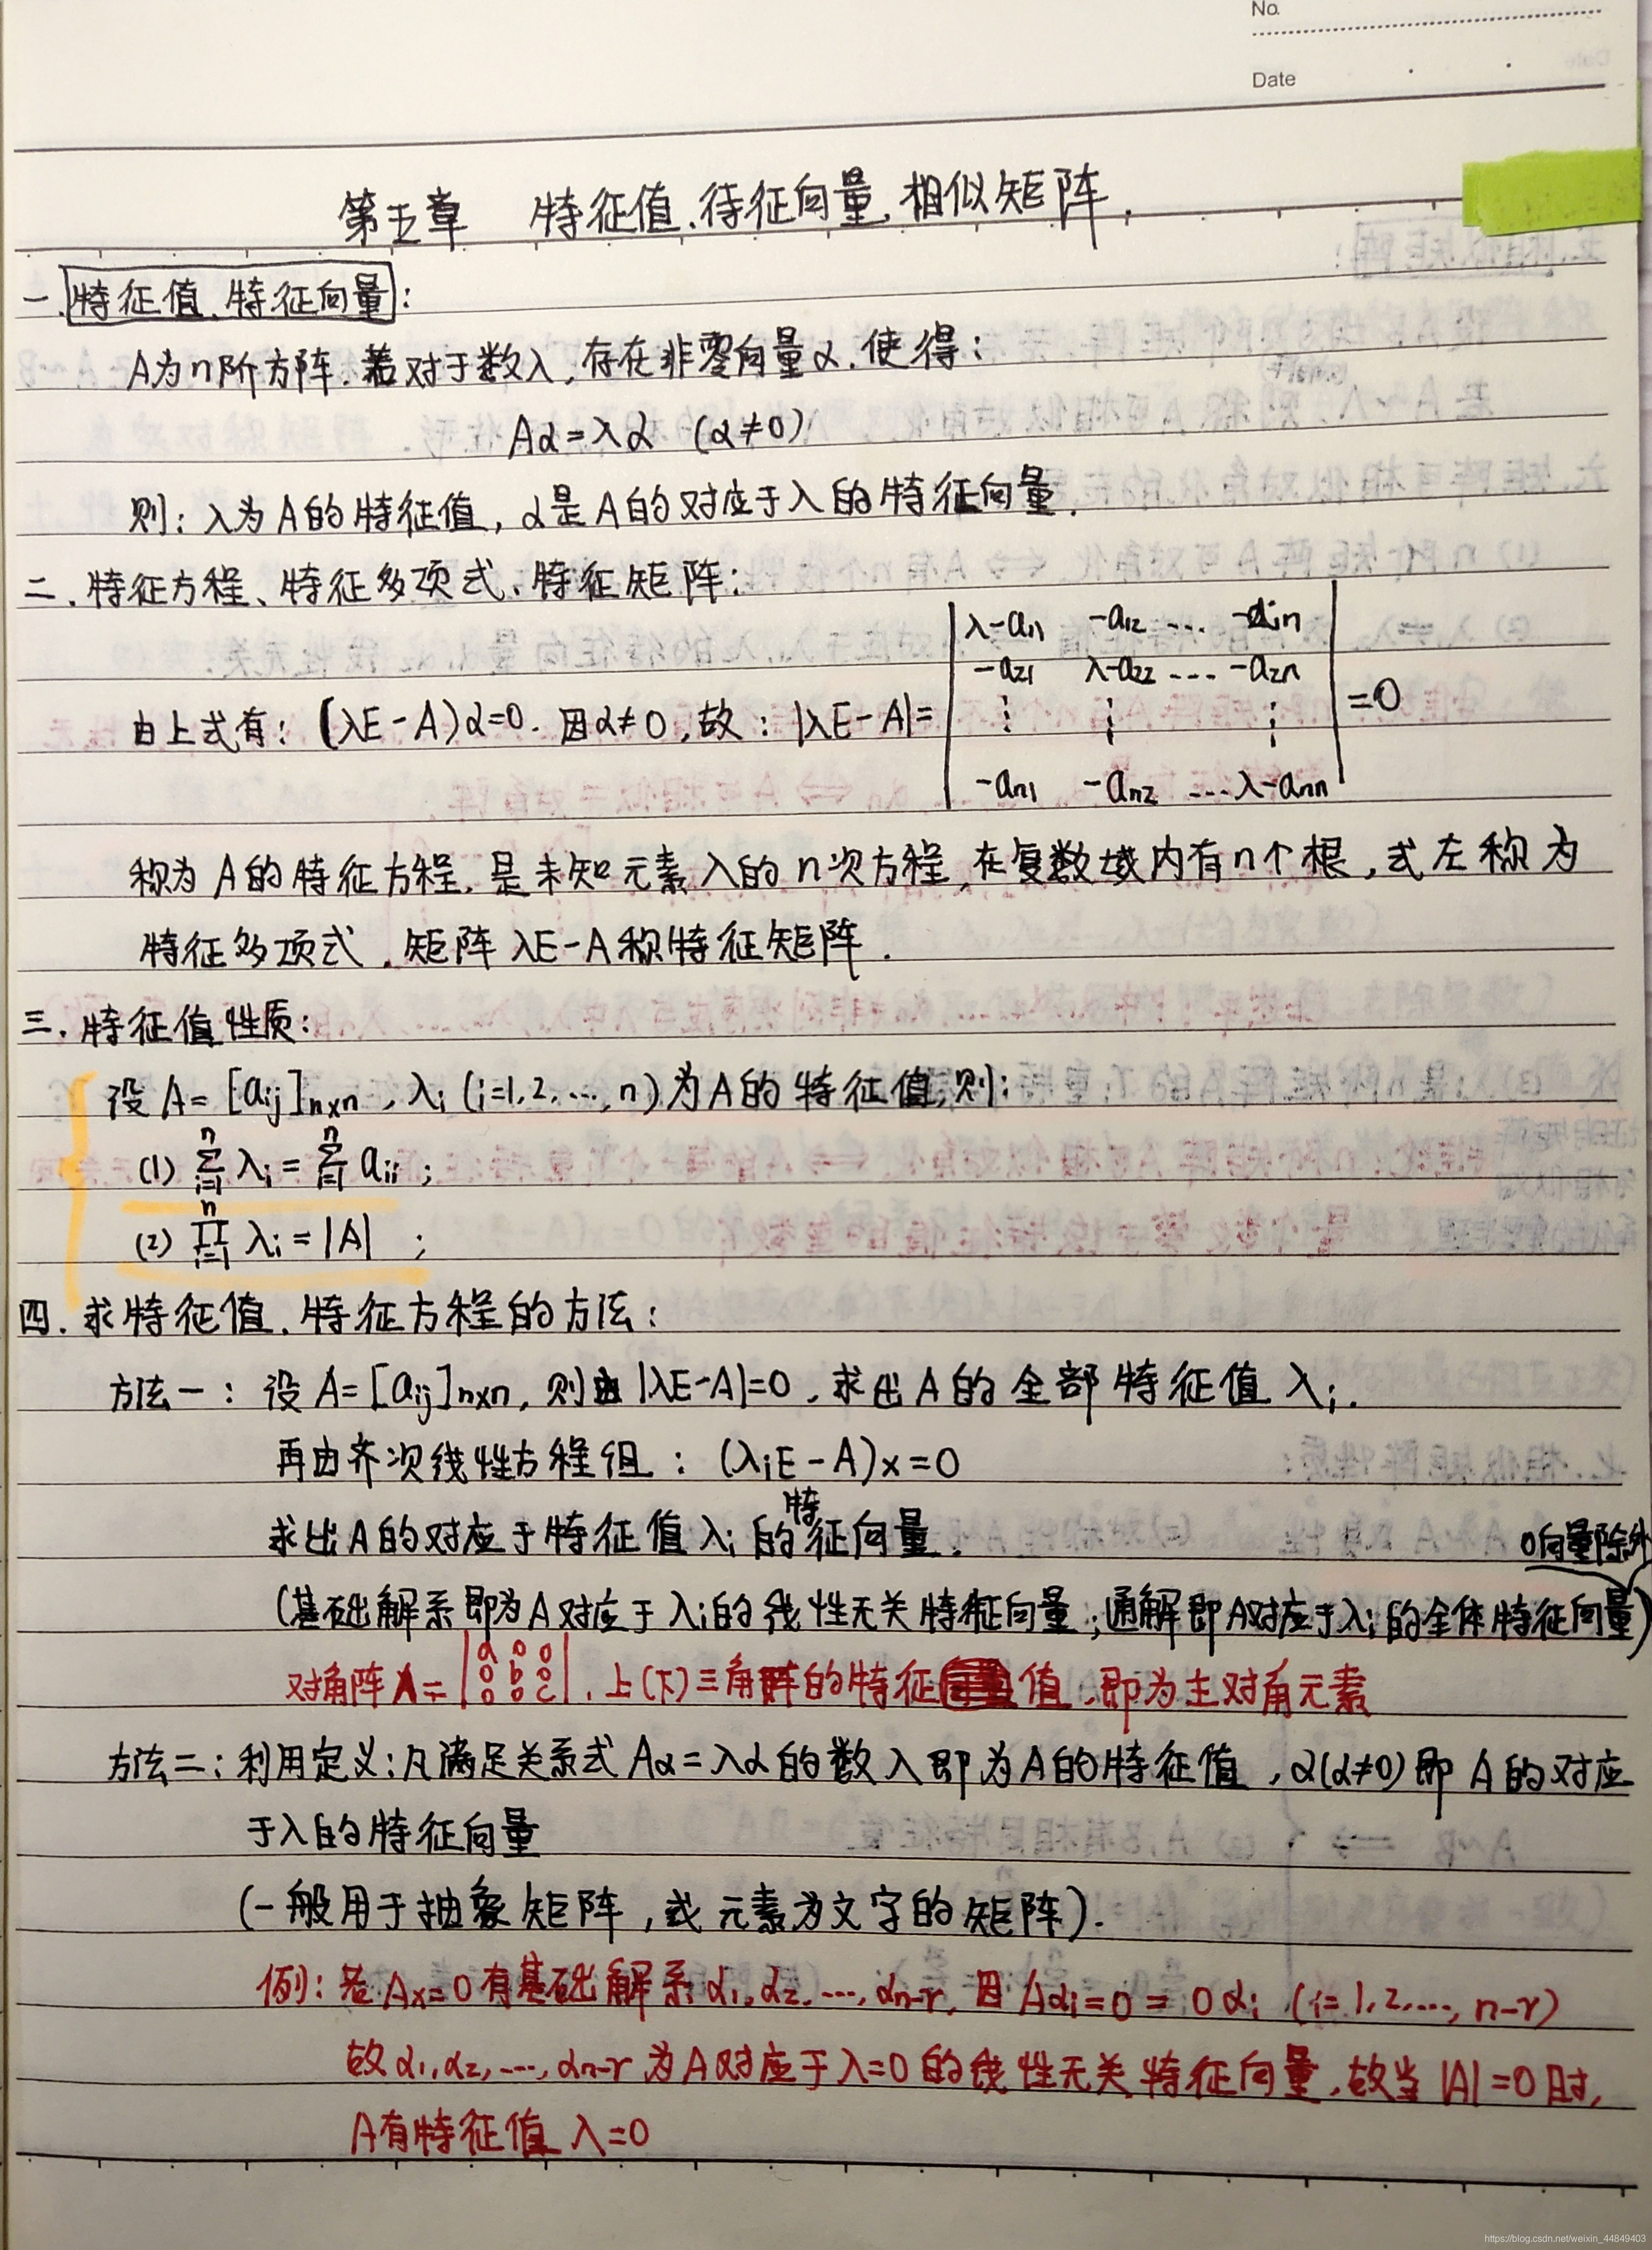 No.
Date
第五章 特征值、待征向量、相似矩阵.
一.特征值、特征向量:
A为n阶方阵.若对于数λ,存在非零向量α.使得:
Aα=λα (α≠0)
则:λ为A的特征值,α是A的对应于λ的特征向量.
二.特征方程、特征多项式、特征矩阵:
由上式有:(λE-A)α=0.因α≠0,故:|λE-A|=
λ-a₁₁ -a₁₂ ... -a₁n
-a₂₁ λ-a₂₂ ... -a₂n
⋮ ⋮ ⋮
-an₁ -an₂ ... λ-ann
=0
称为A的特征方程,是未知元素λ的n次方程,在复数域内有n个根,式左称为
特征多项式.矩阵λE-A称特征矩阵.
三.特征值性质:
设A=[aij]n×n,λi(i=1,2,...,n)为A的特征值,则:
(1) ∑ⁿi=1 λi = ∑ⁿi=1 aii;
(2) ∏ⁿi=1 λi = |A| ;
四.求特征值、特征方程的方法:
方法一:设A=[aij]n×n,则由|λE-A|=0,求出A的全部特征值λi.
再由齐次线性方程组:(λiE-A)x=0
求出A的对应于特征值λi的特征向量.
0向量除外
(基础解系即为A对应于λi的线性无关特征向量;通解即A对应于λi的全体特征向量)
对角阵Λ=|a 0 0
0 b 0
0 0 c|.上(下)三角阵的特征值,即为主对角元素
方法二:利用定义:凡满足关系式Aα=λα的数λ即为A的特征值,α(α≠0)即A的对应
于λ的特征向量
(一般用于抽象矩阵,或元素为文字的矩阵).
例:若Ax=0有基础解系α₁,α₂,...,αn-r,因Aαi=0=0αi (i=1,2,...,n-r)
故α₁,α₂,...,αn-r为A对应于λ=0的线性无关特征向量,故当|A|=0时,
A有特征值λ=0
https://blog.csdn.net/weixin_44849403